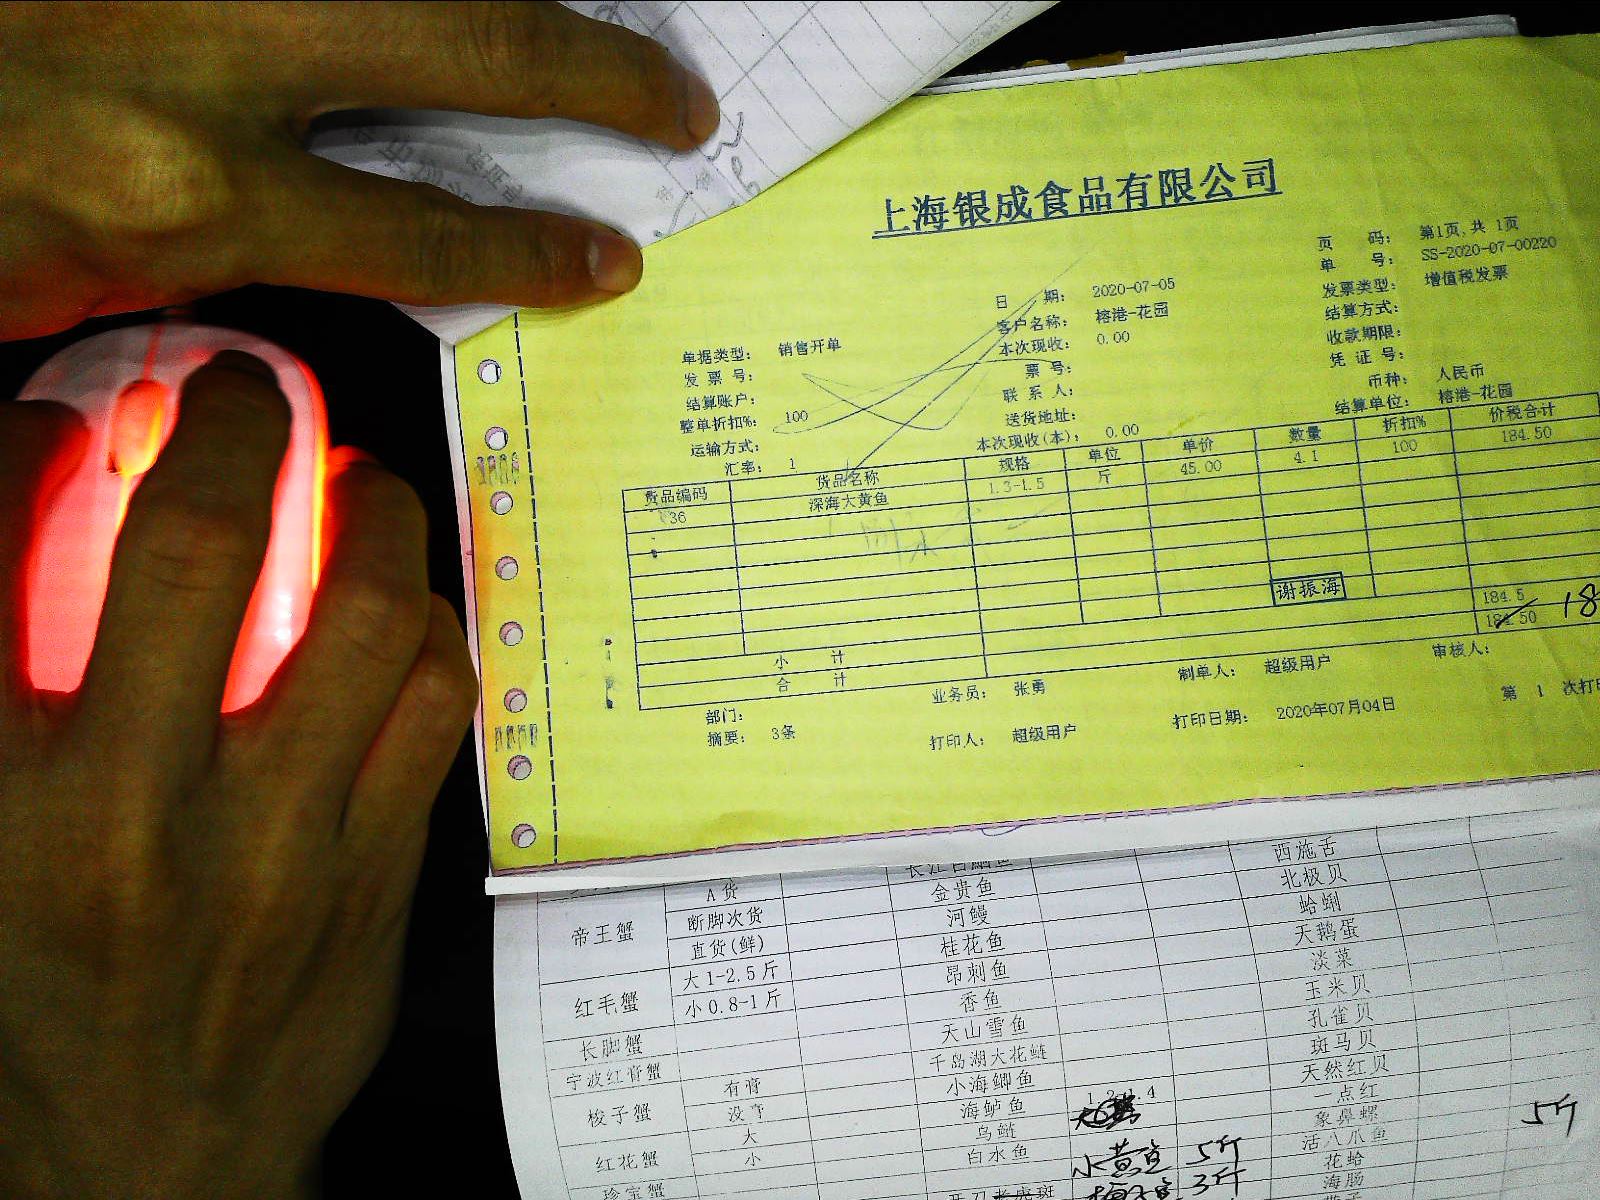 上海银成食品有限公司
页 码: 第1页,共 1页
单 号: SS-2020-07-00220
日 期: 2020-07-05
发票类型: 增值税发票
客户名称: 榕港-花园
结算方式:
单据类型: 销售开单
本次现收: 0.00
收款期限:
发 票 号:
票 号:
凭 证 号:
结算账户:
联 系 人:
币种: 人民币
整单折扣%: 100
送货地址:
结算单位: 榕港-花园
运输方式:
汇率: 1
本次现收(本): 0.00
货品编码 货品名称 规格 单位 单价 数量 折扣% 价税合计
36 深海大黄鱼 1.3-1.5 斤 45.00 4.1 100 184.50
谢振海
小 计 184.5
合 计 184.50 18
部门: 业务员: 张勇 制单人: 超级用户 审核人:
摘要: 3条 打印人: 超级用户 打印日期: 2020年07月04日 第 1 次打印
西施舌
A货 金贵鱼 北极贝
帝王蟹 断脚次货 河鳗 蛤蜊
直货(鲜) 桂花鱼 天鹅蛋
红毛蟹 大1-2.5斤 昂刺鱼 淡菜
小0.8-1斤 香鱼 玉米贝
长脚蟹 天山雪鱼 孔雀贝
宁波红膏蟹 千岛湖大花鲢 斑马贝
梭子蟹 有膏 小海鲫鱼 天然红贝
没膏 海鲈鱼 一点红
红花蟹 大 乌鲢 象鼻螺 5斤
小 白水鱼 小黄鱼 5斤 活八爪鱼
珍宝蟹 3斤 花蛤
海肠